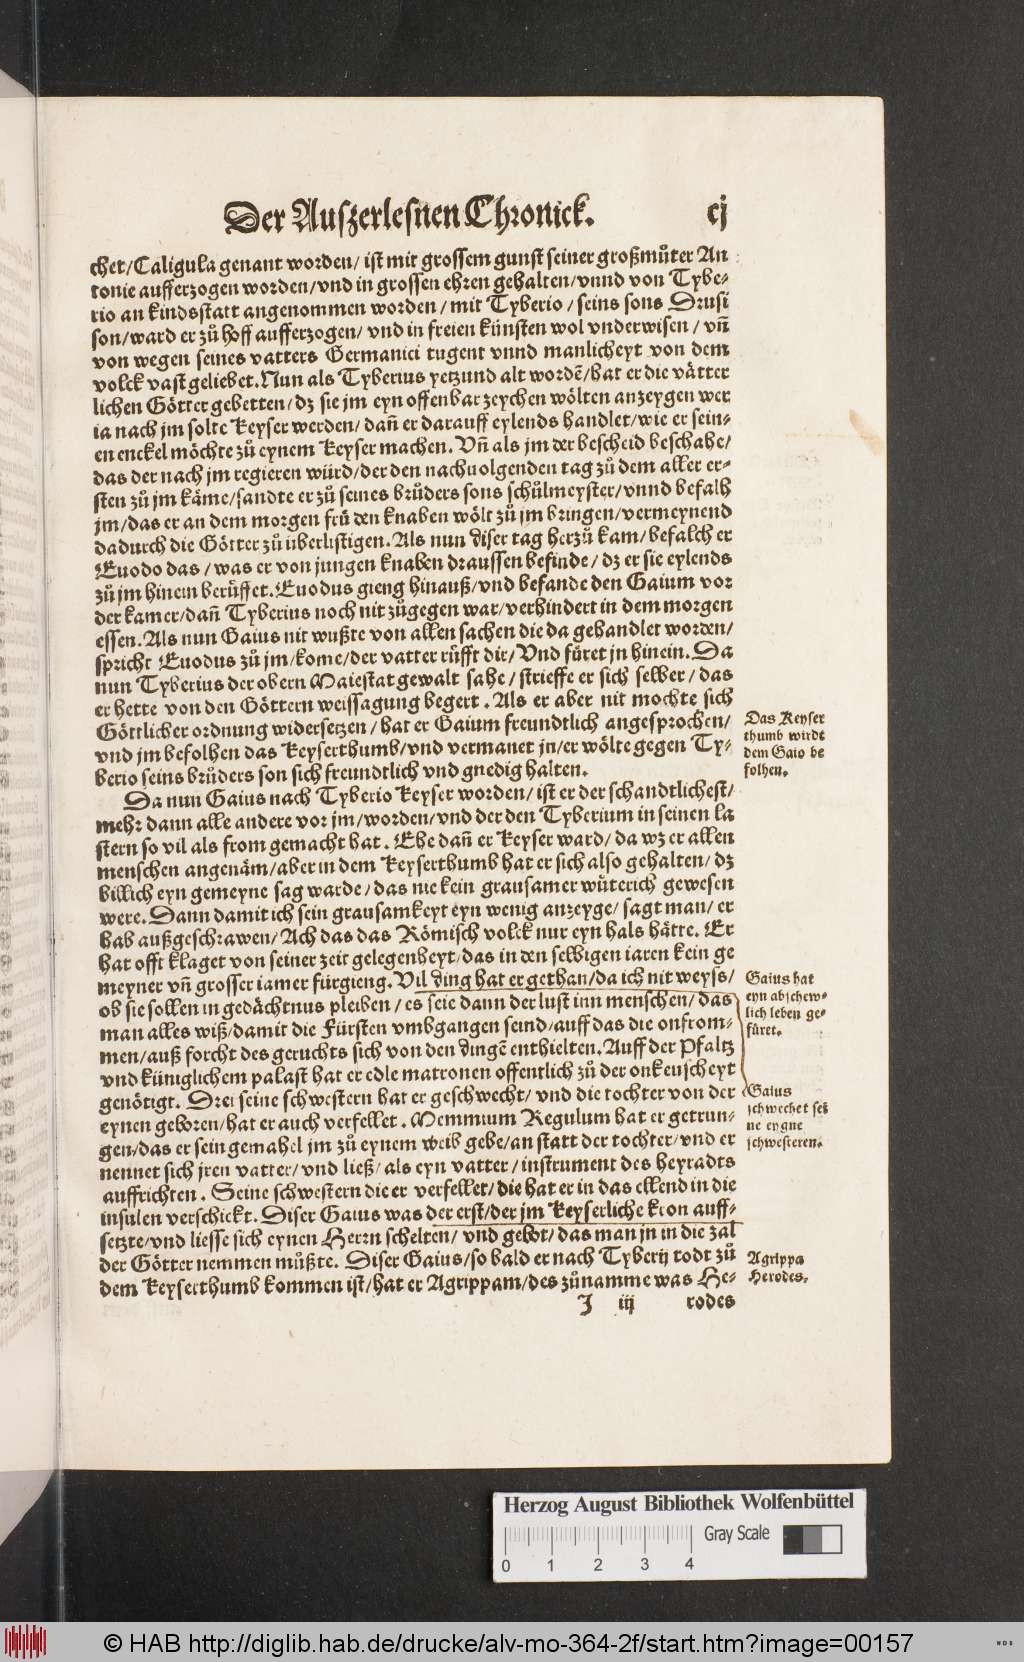 Der Auszerlesnen Chronick. cj
chet/Caligula genant worden/ ist mit grossem gunst seiner großmůter An
tonie aufferzogen worden/vnd in grossen ehren gehalten/vnnd von Tybe-
rio an kindsstatt angenommen worden/ mit Tyberio/ seins sons Drusi
son/ward er zů hoff aufferzogen/ vnd in freien künsten wol vnderwisen/ vñ
von wegen seines vatters Germanici tugent vnnd manlicheyt von dem
volck vast geliebet. Nun als Tyberius yetzund alt wordẽ/hat er die vätter
lichen Götter gebetten/dz sie jm eyn offenbar zeychen wölten anzeygen wer
ia nach jm solte Keyser werden/ dañ er darauff eylends handlet/wie er sein-
en enckel möchte zů eynem Keyser machen. Vñ als jm der bescheid beschahe/
das der nach jm regieren würd/der den nachuolgenden tag zů dem aller er-
sten zů jm käme/sandte er zů seines brůders sons schůlmeyster/vnnd befalh
jm/das er an dem morgen frü den knaben wölt zů jm bringen/vermeynend
dadurch die Götter zů überlistigen. Als nun diser tag herzů kam/befalch er
Euodo das/ was er von jungen knaben draussen befinde/ dz er sie eylends
zů jm hinein berüffet. Euodus gieng hinauß/vnd befande den Gaium vor
der kamer/dañ Tyberius noch nit zůgegen war/verhindert in dem morgen
essen. Als nun Gaius nit wußte von allen sachen die da gehandlet worden/
spricht Euodus zů jm/kome/der vatter rüfft dir/ Vnd füret jn hinein. Da
nun Tyberius der obern Maiestat gewalt sahe/ strieffe er sich selber/ das
er hette von den Göttern weissagung begert. Als er aber nit mochte sich
Göttlicher ordnung widersetzen/ hat er Gaium freundtlich angesprochen/
vnd jm befolhen das Keyserthumb/vnd vermanet jn/er wölte gegen Ty-
berio seins brůders son sich freundtlich vnd gnedig halten.
Das Keyser
thumb wirdt
dem Gaio be
folhen.
Da nun Gaius nach Tyberio Keyser worden/ ist er der schandtlichest/
mehr dann alle andere vor jm/worden/vnd der den Tyberium in seinen la
stern so vil als from gemacht hat. Ehe dañ er Keyser ward/ da wz er allen
menschen angenäm/aber in dem Keyserthumb hat er sich also gehalten/ dz
billich eyn gemeyne sag warde/ das nie kein grausamer wůterich gewesen
were. Dann damit ich sein grausamkeyt eyn wenig anzeyge/ sagt man/ er
hab außgeschrawen/Ach das das Römisch volck nur eyn hals hätte. Er
hat offt klaget von seiner zeit gelegenheyt/das in den selbigen iaren kein ge
meyner vñ grosser iamer fürgieng. Vil ding hat er gethan/da ich nit weyss/
ob sie sollen in gedächtnus pleiben/ es seie dann der lust inn menschen/ das
man alles wiß/damit die Fürsten vmbgangen seind/auff das die onfrom-
men/auß forcht des geruchts sich von den dingẽ enthielten. Auff der Pfaltz
vnd küniglichem palast hat er edle matronen offentlich zů der onkeuscheyt
genötigt. Drei seine schwestern hat er geschwecht/ vnd die tochter von der
eynen geboren/hat er auch verfellet. Memmium Regulum hat er getrun-
gen/das er sein gemahel jm zů eynem weib gebe/an statt der tochter/vnd er
nennet sich jren vatter/vnd ließ/als eyn vatter/instrument des heyradts
auffrichten. Seine schwestern die er verfellet/die hat er in das ellend in die
insulen verschickt. Diser Gaius was der erst/der jm Keyserliche kron auff-
setzte/vnd liesse sich eynen Herrn schelten/ vnd gebot/das man jn in die zal
der Götter nemmen můßte. Diser Gaius/so bald er nach Tyberij todt zů
dem Keyserthumb kommen ist/hat er Agrippam/des zůnamme was He-
Gaius hat
eyn abschew-
lich leben ge-
füret.
Gaius
schwechet sei
ne eygne
schwesteren.
Agrippa
Herodes.
J iij rodes
Herzog August Bibliothek Wolfenbüttel
Gray Scale
0 1 2 3 4
© HAB http://diglib.hab.de/drucke/alv-mo-364-2f/start.htm?image=00157